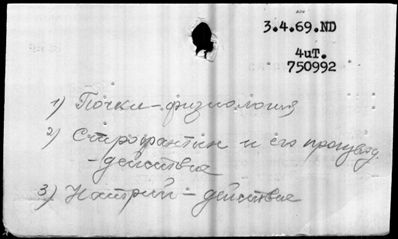 3.4.69.ND
4uT.
750992
1) Почки - физиология
2) Строфантин и его производ.
- действие
3) Натрий - действие